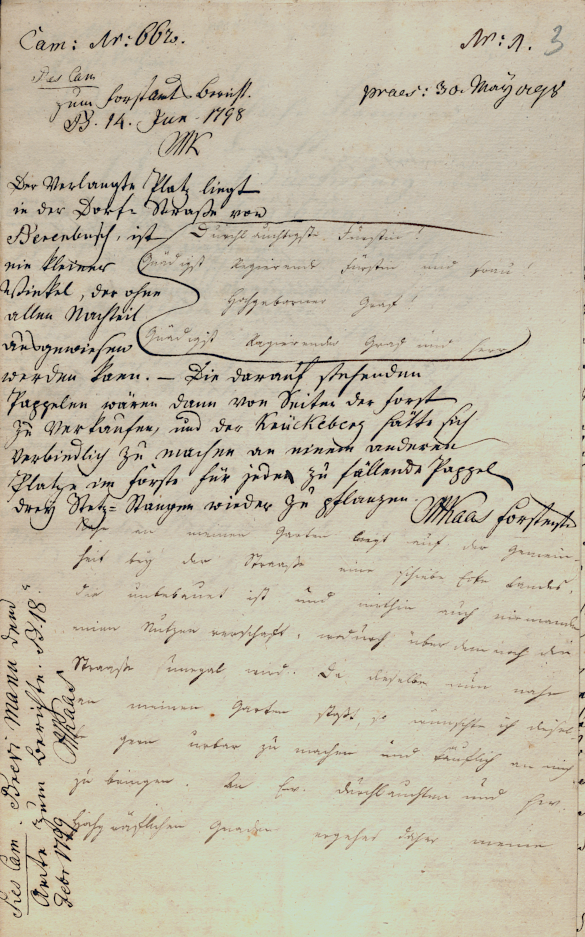 Cam: Nr: 662.
Nr: 1. 3
Res Cam
zum Forstamts Bericht.
B. 14. Jun. 1798
praes: 30. May 1798
Der Verlangte Platz liegt
in der Dorf= Straße von
Berenbusch, ist
ein kleiner
Winkel, der ohne
allen Nachteil
ausgewiesen
werden kann. — Die darauf stehenden
Pappelen wären dann von Seiten der Forst
zu verkaufen, und der Krückeberg hätte sich
verbindlich zu machen an einem anderen
Platze im Forste für jeden zu fällende Pappel
drey Setz=Stangen wieder zu pflanzen.
Kaas Forstmstr
Durchlauchtigste Fürstin!
Gnädigst Regierende Fürstin und Frau!
Hochgeborner Graf!
Gnädigst Regierender Graf und Herr
an meinen Garten liegt auf der Gemein-
heit bey der Straaße eine schiebe Ecke Landes,
die unbebauet ist und mithin auch niemanden
einen Nutzen verschaft, wodurch über dem noch die
Straaße wird. Da dieselbe nun nahe
an meinen Garten stößt, so wünschte ich diesel-
gern urbar zu machen und käuflich an mich
zu bringen. An Ew. Durchlauchten und Ew.
Hochgräflichen Gnaden ergehet daher meine
Res Cam: Brevi Manu dem
Amte zum Berichte. B. 18
Febr 1799
Kaas